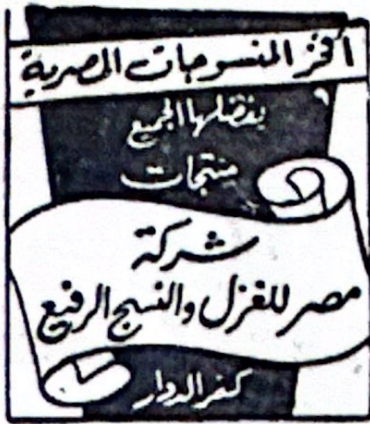 أفخر المنسوجات المصرية
يفضلها الجميع
منتجات
شركة
مصر للغزل والنسج الرفيع
كفر الدوار